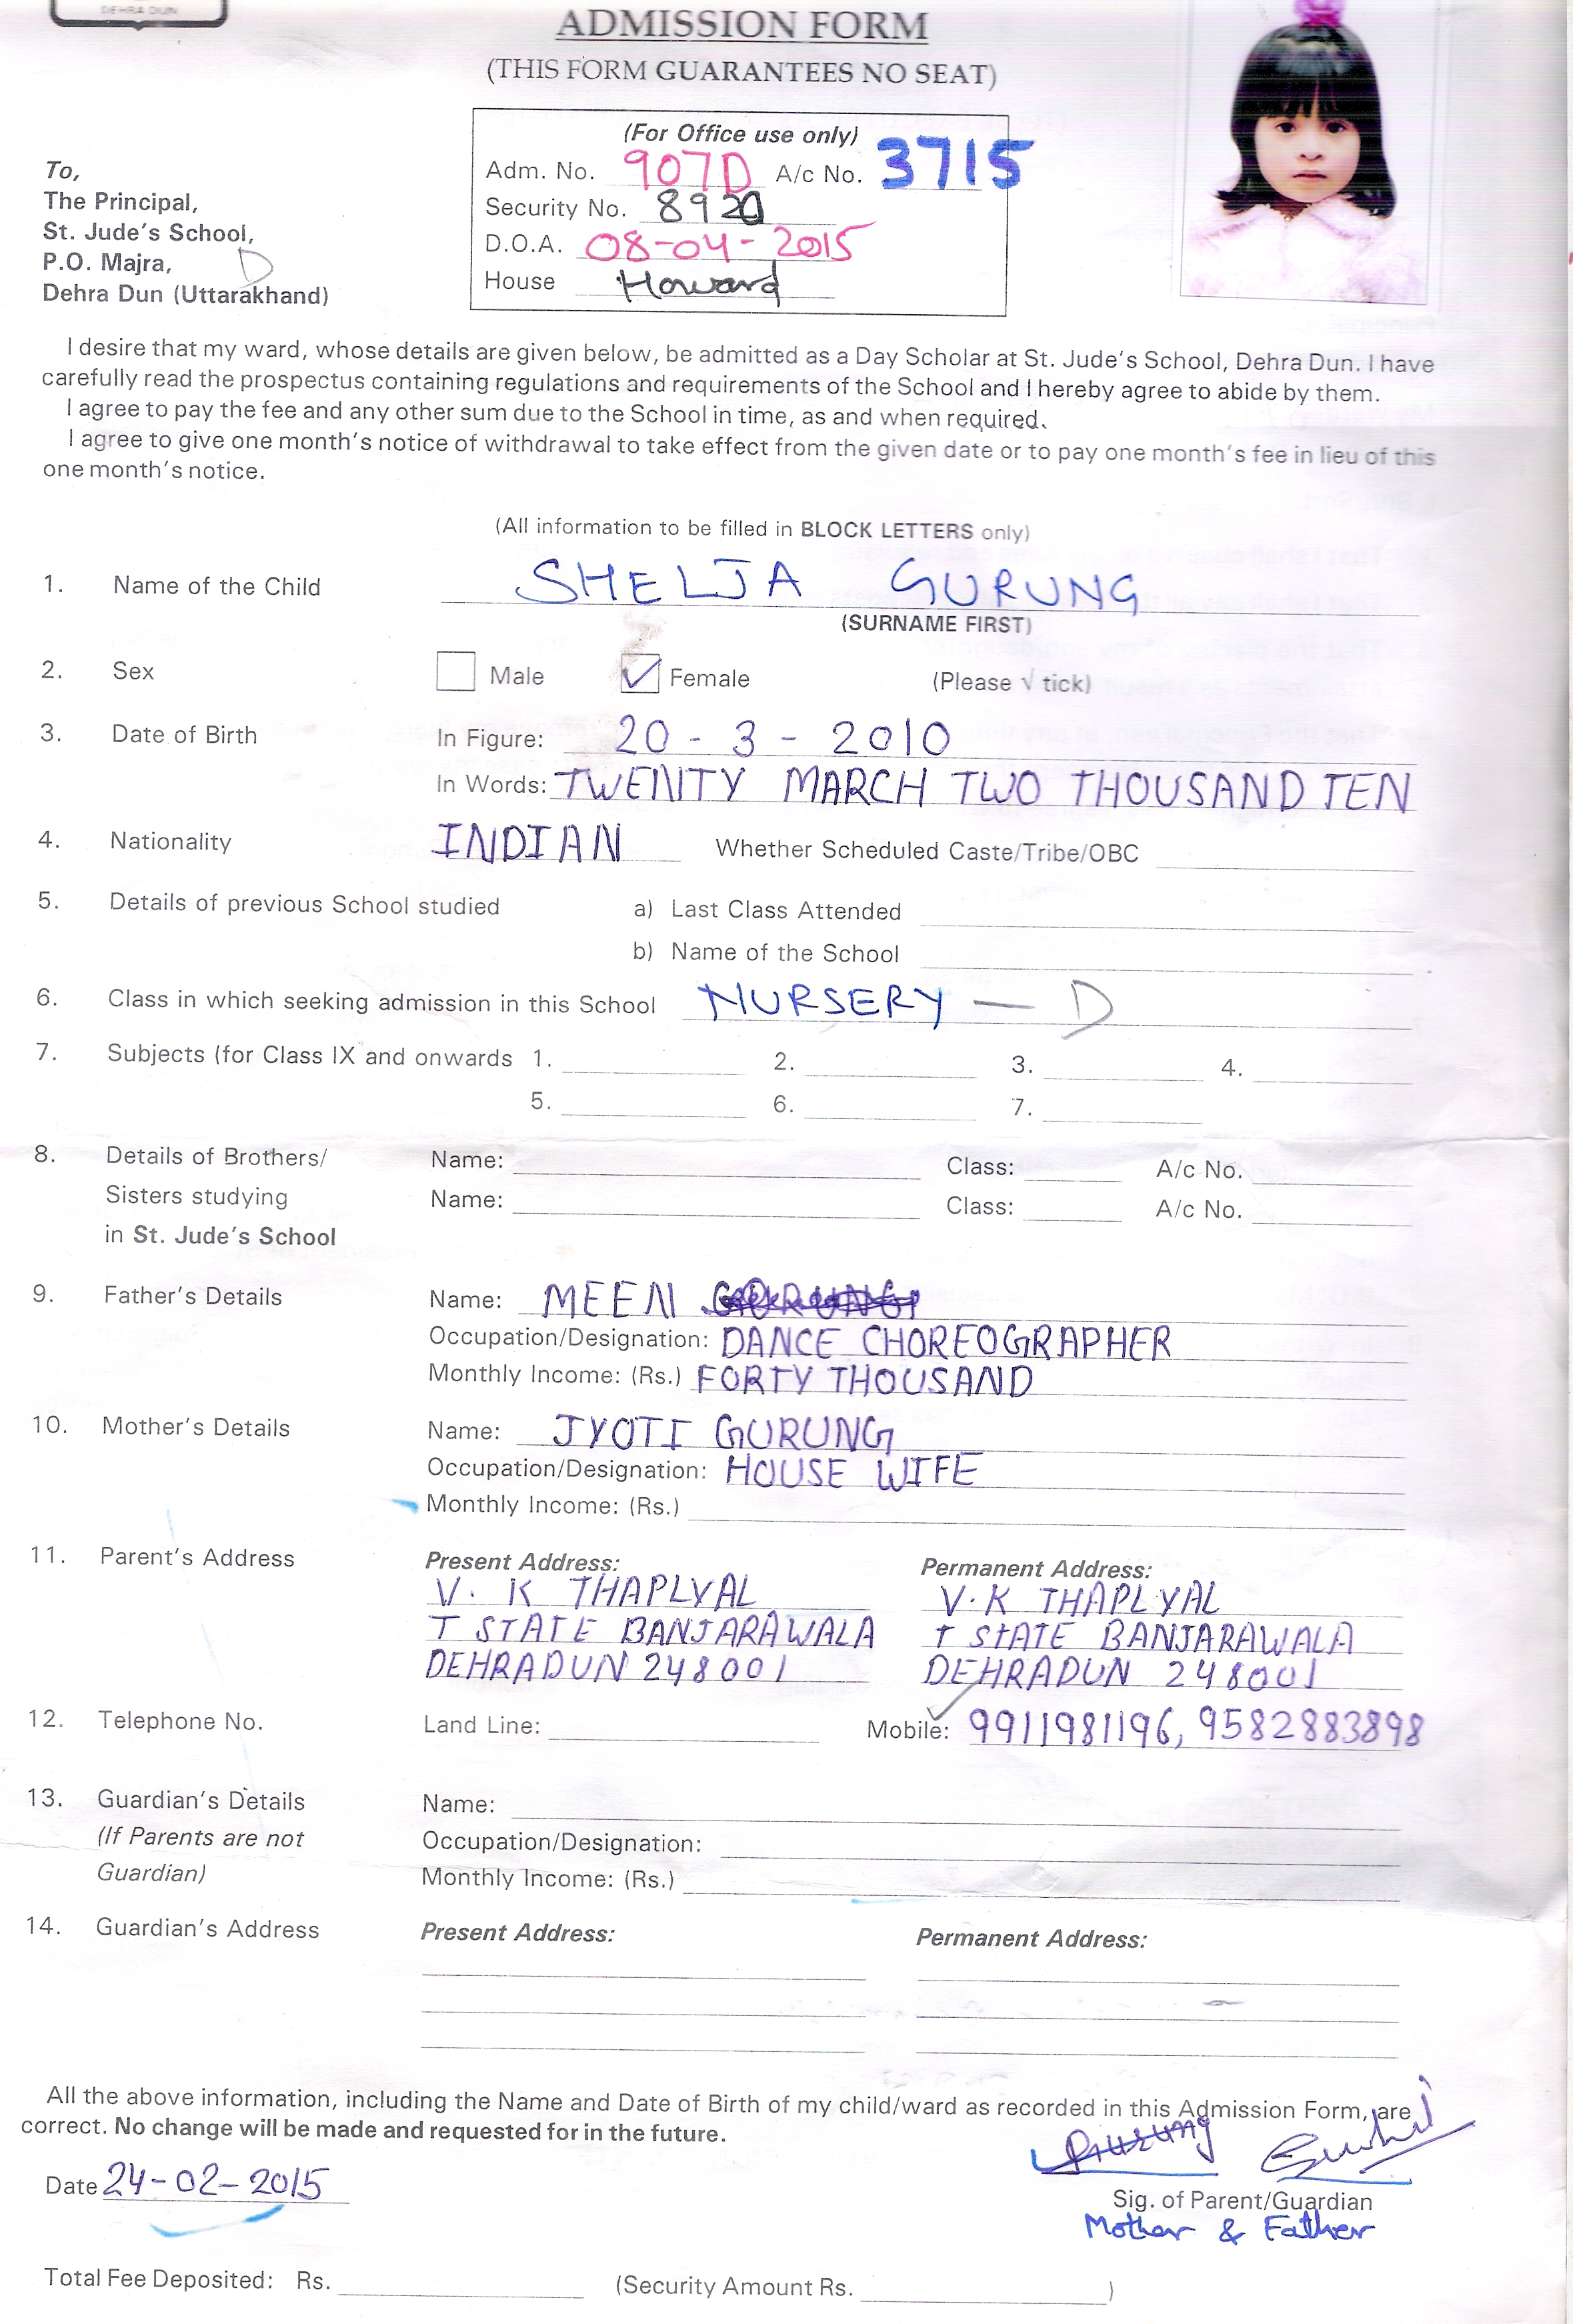 DEHRA DUN
ADMISSION FORM
(THIS FORM GUARANTEES NO SEAT)
(For Office use only)
Adm. No. 907D A/c No. 3715
Security No. 8920
D.O.A. 08-04-2015
House Howard
To,
The Principal,
St. Jude's School,
P.O. Majra, D
Dehra Dun (Uttarakhand)
I desire that my ward, whose details are given below, be admitted as a Day Scholar at St. Jude's School, Dehra Dun. I have
carefully read the prospectus containing regulations and requirements of the School and I hereby agree to abide by them.
I agree to pay the fee and any other sum due to the School in time, as and when required.
I agree to give one month's notice of withdrawal to take effect from the given date or to pay one month's fee in lieu of this
one month's notice.
(All information to be filled in BLOCK LETTERS only)
1. Name of the Child SHELJA GURUNG
(SURNAME FIRST)
2. Sex Male ✓ Female (Please √ tick)
3. Date of Birth In Figure: 20 - 3 - 2010
In Words: TWENTY MARCH TWO THOUSAND TEN
4. Nationality INDIAN Whether Scheduled Caste/Tribe/OBC
5. Details of previous School studied a) Last Class Attended
b) Name of the School
6. Class in which seeking admission in this School NURSERY — D
7. Subjects (for Class IX and onwards 1. 2. 3. 4.
5. 6. 7.
8. Details of Brothers/ Name: Class: A/c No.
Sisters studying Name: Class: A/c No.
in St. Jude's School
9. Father's Details Name: MEEN
Occupation/Designation: DANCE CHOREOGRAPHER
Monthly Income: (Rs.) FORTY THOUSAND
10. Mother's Details Name: JYOTI GURUNG
Occupation/Designation: HOUSE WIFE
Monthly Income: (Rs.)
11. Parent's Address Present Address: Permanent Address:
V. K THAPLYAL V.K THAPLYAL
T STATE BANJARAWALA T STATE BANJARAWALA
DEHRADUN 248001 DEHRADUN 248001
12. Telephone No. Land Line: Mobile: 9911981196, 9582883898
13. Guardian's Details Name:
(If Parents are not Occupation/Designation:
Guardian) Monthly Income: (Rs.)
14. Guardian's Address Present Address: Permanent Address:
All the above information, including the Name and Date of Birth of my child/ward as recorded in this Admission Form, are
correct. No change will be made and requested for in the future.
Date 24-02-2015
Sig. of Parent/Guardian
Mother & Father
Total Fee Deposited: Rs. (Security Amount Rs. )